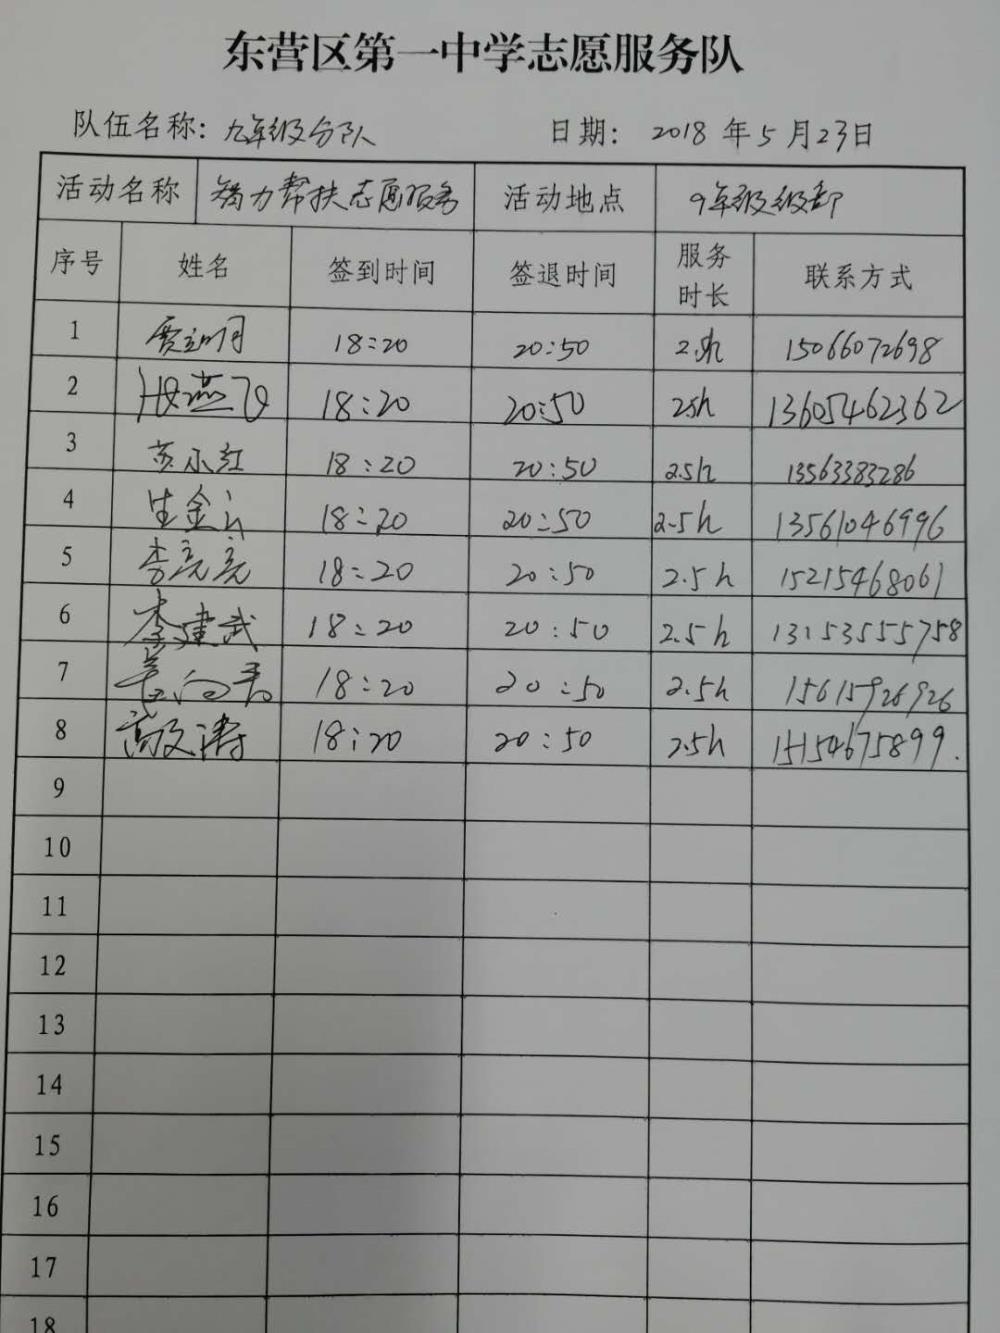 东营区第一中学志愿服务队
队伍名称: 九年级分队 日期: 2018 年 5 月 23 日
活动名称 智力帮扶志愿服务 活动地点 9年级级部
序号 姓名 签到时间 签退时间 服务时长 联系方式
1 18:20 20:50 2.5h 15066072698
2 燕飞 18:20 20:50 25h 13605462362
3 苏小红 18:20 20:50 2.5h 13563383286
4 生金 18:20 20:50 2.5h 13561046996
5 李亮亮 18:20 20:50 2.5h 15215468061
6 李建武 18:20 20:50 2.5h 13153555758
7 18:20 20:50 2.5h 15615926926
8 高文涛 18:20 20:50 2.5h 15154675899.
9
10
11
12
13
14
15
16
17
18